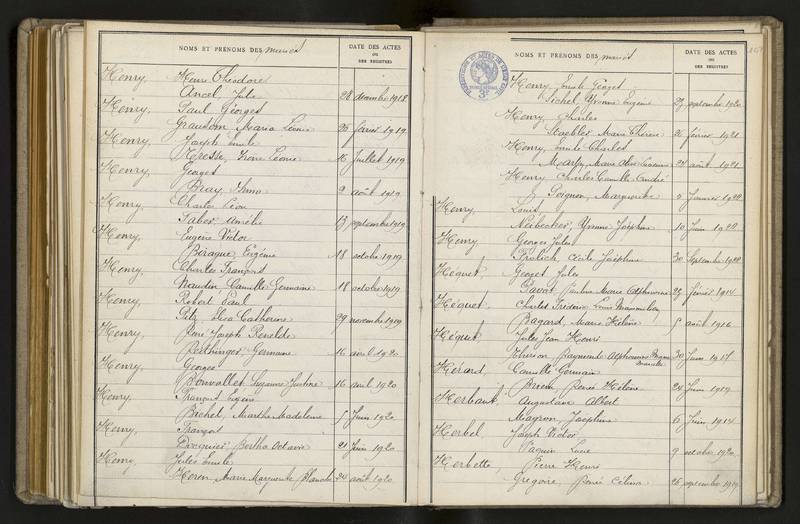 NOMS ET PRÉNOMS DES mariés
DATE DES ACTES
OU
DES REGISTRES
Henry, Henri Théodore
Ancel, Julie 28 décembre 1918
Henry, Paul Georges
Maria Léonie 25 février 1919
Henry, Joseph Emile
Irène Léonie 16 Juillet 1919
Henry, Georges
Bray, 2 août 1919
Henry, Charles Léon
Tabor Amélie 13 septembre 1919
Henry, Eugène Victor
Béraque, Eugénie 18 octobre 1919
Henry, Charles François
Naudin Camille Germaine 18 octobre 1919
Henry, Robert Paul
Elsa Catherine 29 novembre 1919
Henry, René Joseph
Germaine 16 avril 1920
Henry, Georges
Bonvallet Suzanne Justine 16 avril 1920
Henry, François Eugène
Bichel, Marthe Madeleine 5 Juin 1920
Henry, François
Bertha Octavie 21 Juin 1920
Henry, Jules Emile
Heron Marie Marguerite Blanche 24 août 1920
NOMS ET PRÉNOMS DES mariés
DATE DES ACTES
OU
DES REGISTRES
Henry, Emile Georges
Sichel, Yvonne Eugénie 29 septembre 1920
Henry, Charles
Staebler Marie Thérèse 26 février 1921
Henry, Emile Charles
Marie 24 août 1921
Henry Charles Camille André
Poignon, Marguerite 2 Janvier 1922
Henry, Louis
Yvonne Joséphine 10 Juin 1922
Henry Georges Jules
Frolich Cécile Joséphine 30 septembre 1922
Héquet Georges Jules
Pavot Pauline Marie Alphonsine 25 février 1914
Héquet, Charles Frédéric Louis
Bagard, Marie Hélène 5 août 1916
Héquet Jules Jean Henri
Raymonde Alphonsine 30 Juin 1917
Hérard, Camille Germain
Renée Hélène 24 Juin 1919
Herbaut, Augustave Albert
Magron Joséphine 6 Juin 1914
Herbel Joseph Victor
Paquin Lucie 9 octobre 1920
Herbette, Pierre Henri
Grégoire, Renée 26 septembre 1919